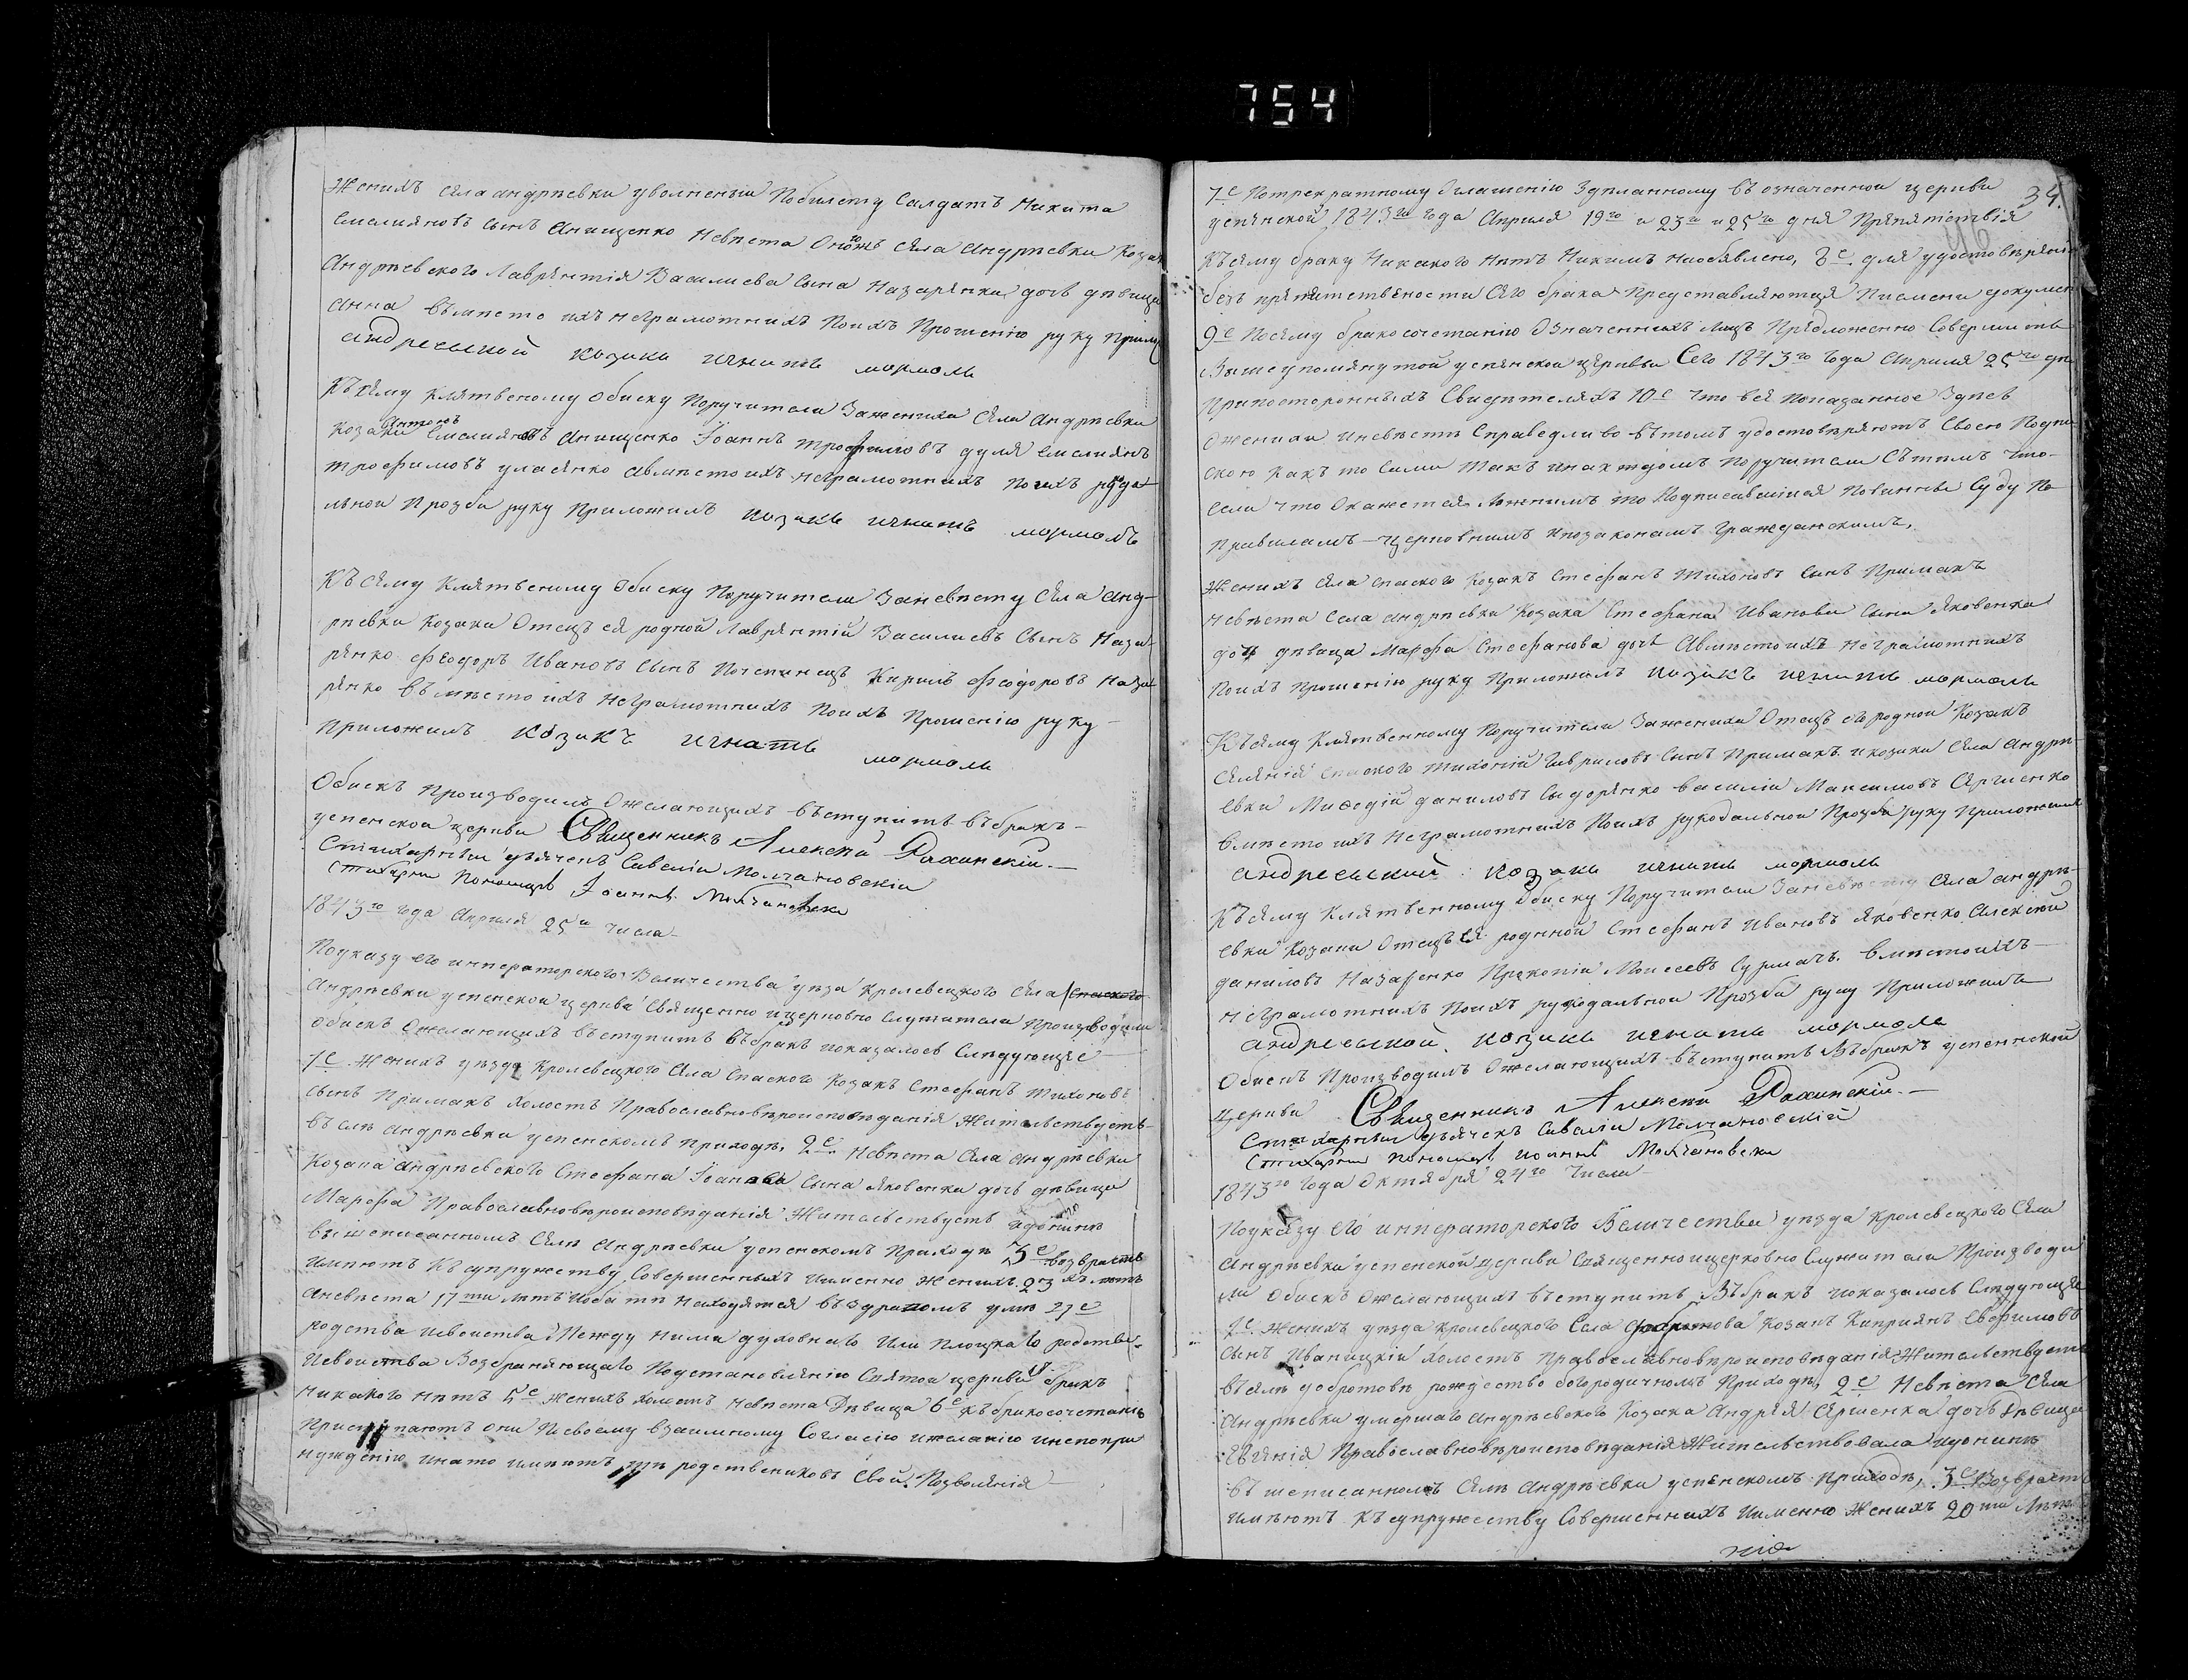 754
Женихъ села андрѣевки уволненый Побилету Салдатъ Никита
Емелияновъ сынъ Анищенко Невѣста Оногожъ села андрѣевки Козака
Андрѣевского Лаврентія Василиева Сына Назаренка дочь дѣвица
анна въмѣсто ихъ неграмотнихъ Поихъ Прошению руку прилож
андреевской козакъ игнатъ мормоль
Къ сему клятвеному обиску Поручители Зажениха Села андрѣевки
Козаки Антонъ Емелияновъ Анищенко Іоаннъ трофимовъ дуля Емелиянъ
трофимовъ уласенко авмѣсто ихъ неграмотнихъ по ихъ рукода-
льной Прозби руку Приложилъ козакъ игнатъ мормоль
Къ сему клятвеному обиску Поручители Заневѣсту Села Анд-
рѣевки Козаки Отецъ ея родной Лаврентій Василиевъ Сынъ Наза-
ренко феодоръ Ивановъ Сынъ Почепинецъ Кирилъ феодоровъ Наза-
ренко въмѣсто ихъ неграмотнихъ Поихъ Прошению руку-
Приложилъ козакъ игнатъ мормоль
Обискъ Производилъ Ожелающихъ въступить въбракъ-
успенской церкви Священникъ Алексѣй Рахинскій.-
Стихарный дьячекъ Савелій Молчановскій
Стихарни Пономарь Іоаннъ Молчановски
1843го года Апреля 25го числа
Поуказу его императорского Величества уѣзда Кролевецкого Села Спаского
Андрѣевки успенской церкви Священно ицерковно Служители Производили
обискъ Ожелающихъ въступить въбракъ ипоказалось Слѣдующее
1е Женихъ уѣзда Кролевецкого Села Спаского Козакъ Стефанъ Тихоновъ
сынъ Примакъ холостъ Православновѣроисповѣданія Жителствуетъ
въ селѣ андрѣевки успенскомъ приходѣ, 2е Невѣста Села андрѣевки
Козака андрѣевского Стефана Іоанова Сына яковенка дочь дѣвица
Марфа Православновѣроисповѣданія Жителствуетъ идонинѣ
вышеписанномъ Селѣ андрѣевки успенскомъ Приходѣ 3е возврастъ
имѣютъ Къ супружеству Совершенныхъ Именно Женихъ 23хъ лѣтъ
аневѣста 17ти лѣтъ иоба тѣ находятся въ здравомъ умѣ 4е
родства исвойства Между ними духовнаго Или Плоцкаго родства-
исвойства Возбраняющаго Подстановленію Святой церкви бракъ
никакого нѣтъ 5е Женихъ холостъ невѣста Дѣвица 6е Къ бракосочетанію
Приступаютъ они Посвоему взаимному Согласію ижеланію инепопри
нужденію инато имѣютъ родствениковъ Свой Позволенія
34.
46
7е Потрекратному Оглашению Здѣланному въ означенной церкви
успенской 1843го года Апреля 19го и 23го и 25го дня Препятствія
Къ сему браку Никакого нѣтъ Никимъ необявлено, 8е для удостовѣренія
безъ препятствености сего брака Представляются Писмени докумен
9е Посему бракосочетанию Означенныхъ лицъ Предложенно Совершить
Вышеупомянутой успенской церкви Сего 1843го года Апреля 25го дня
Припосторонныхъ Свидѣтеляхъ 10е Что вся Показанное Здѣсь
Ожениха иневѣсте Справедливо вътомъ удостовѣряютъ Своею Подпи
скою какъ то Сами Такъ инахъ Поручители Сътимъ Что-
если что Окажется Ложнимъ то Подписавшіися Повинны Суду По
Правиламъ церковнимъ ипозаконамъ Гражданскимъ.
Женихъ Села Спаского Козакъ Стефанъ Тихоновъ сынъ Примакъ
Невѣста Села андрѣевки Козака Стефана Иванова Сына яковенка
дочь дѣвица Марфа Стефанова дочь Авмѣсто ихъ неграмотнихъ
Поихъ прошению руку Приложилъ козакъ игнатъ мормоль
Къ сему Клятвенному Поручители Зажениха Отецъ его родной Козакъ
селенія Спаского Тихоній Гавриловъ Сынъ Примакъ икозаки Села Андрѣ-
евки Мифодій даниловъ Сидоренко василій Максимовъ Сергіенко
вмѣсто ихъ неграмотнихъ Поихъ рукодальной Прозби руку Приложилъ
андреевской козакъ игнатъ мормоль
Къ сему Клятвенному обиску Поручители Заневѣсту Села андрѣ-
евки Козаки Отецъ ея родной Стефанъ Ивановъ яковенко Алексѣй
даниловъ Назаренко Прокопій Моисеевъ Сурмачъ. вмѣсто ихъ
неграмотнихъ Поихъ рукодальной Прозби руку Приложилъ
андреевской козакъ игнатъ мормоль
Обискъ Производилъ Ожелающихъ въступить Въбракъ успенской
церкви Священникъ Алексѣй Рахинскій.-
Стихарный дьячекъ Савелій Молчановскій
Стихарни пономарь Иоаннъ Молчановски
1843го года Октября 24го Числа
Поуказу его императорского Величества уѣзда Кролевецкого Села
Андрѣевки успенской церкви Священноицерковно Служители Производи
ли Обискъ Ожелающихъ въступить Въбракъ ипоказалось Слѣдующее
1е. Женихъ уѣзда Кролевецкого Села Козакъ Киприянъ Евфимовъ
Сынъ Иваницкій холостъ Православновѣроисповѣданія Жителствуетъ
въ селѣ добротовѣ рождество богородичномъ Приходѣ, 2е Невѣста Села
Андрѣевки умершаго андрѣевского Козака Андрея Сергіенка дочь дѣвица
Евгенія Православновѣроисповѣданія Жителствовала идонинѣ
въ шеписанномъ Селѣ Андрѣевки успенскомъ Приходѣ, 3е Возврастъ
имѣютъ Къ супружеству Совершеннихъ Именно Женихъ 20ти лѣтъ